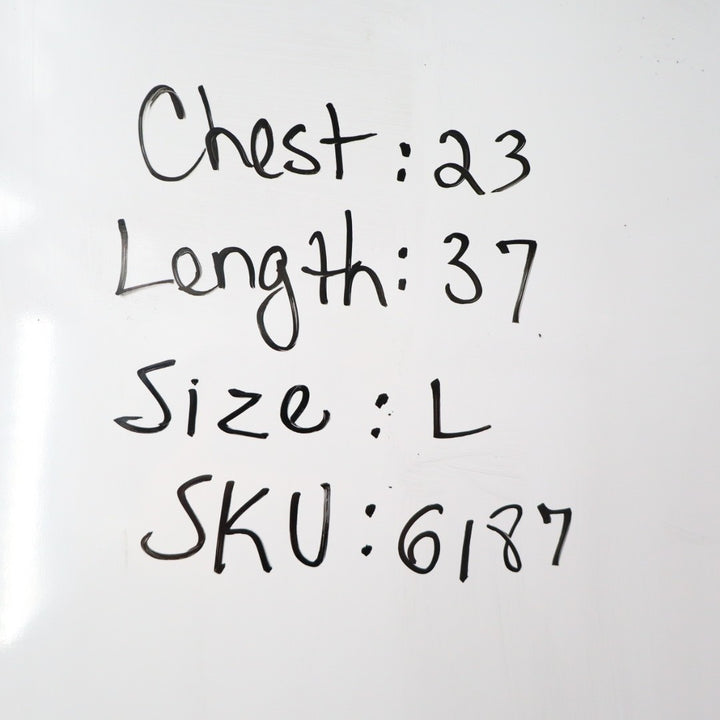 Chest : 23
Length : 37
Size : L
SKU : 6187